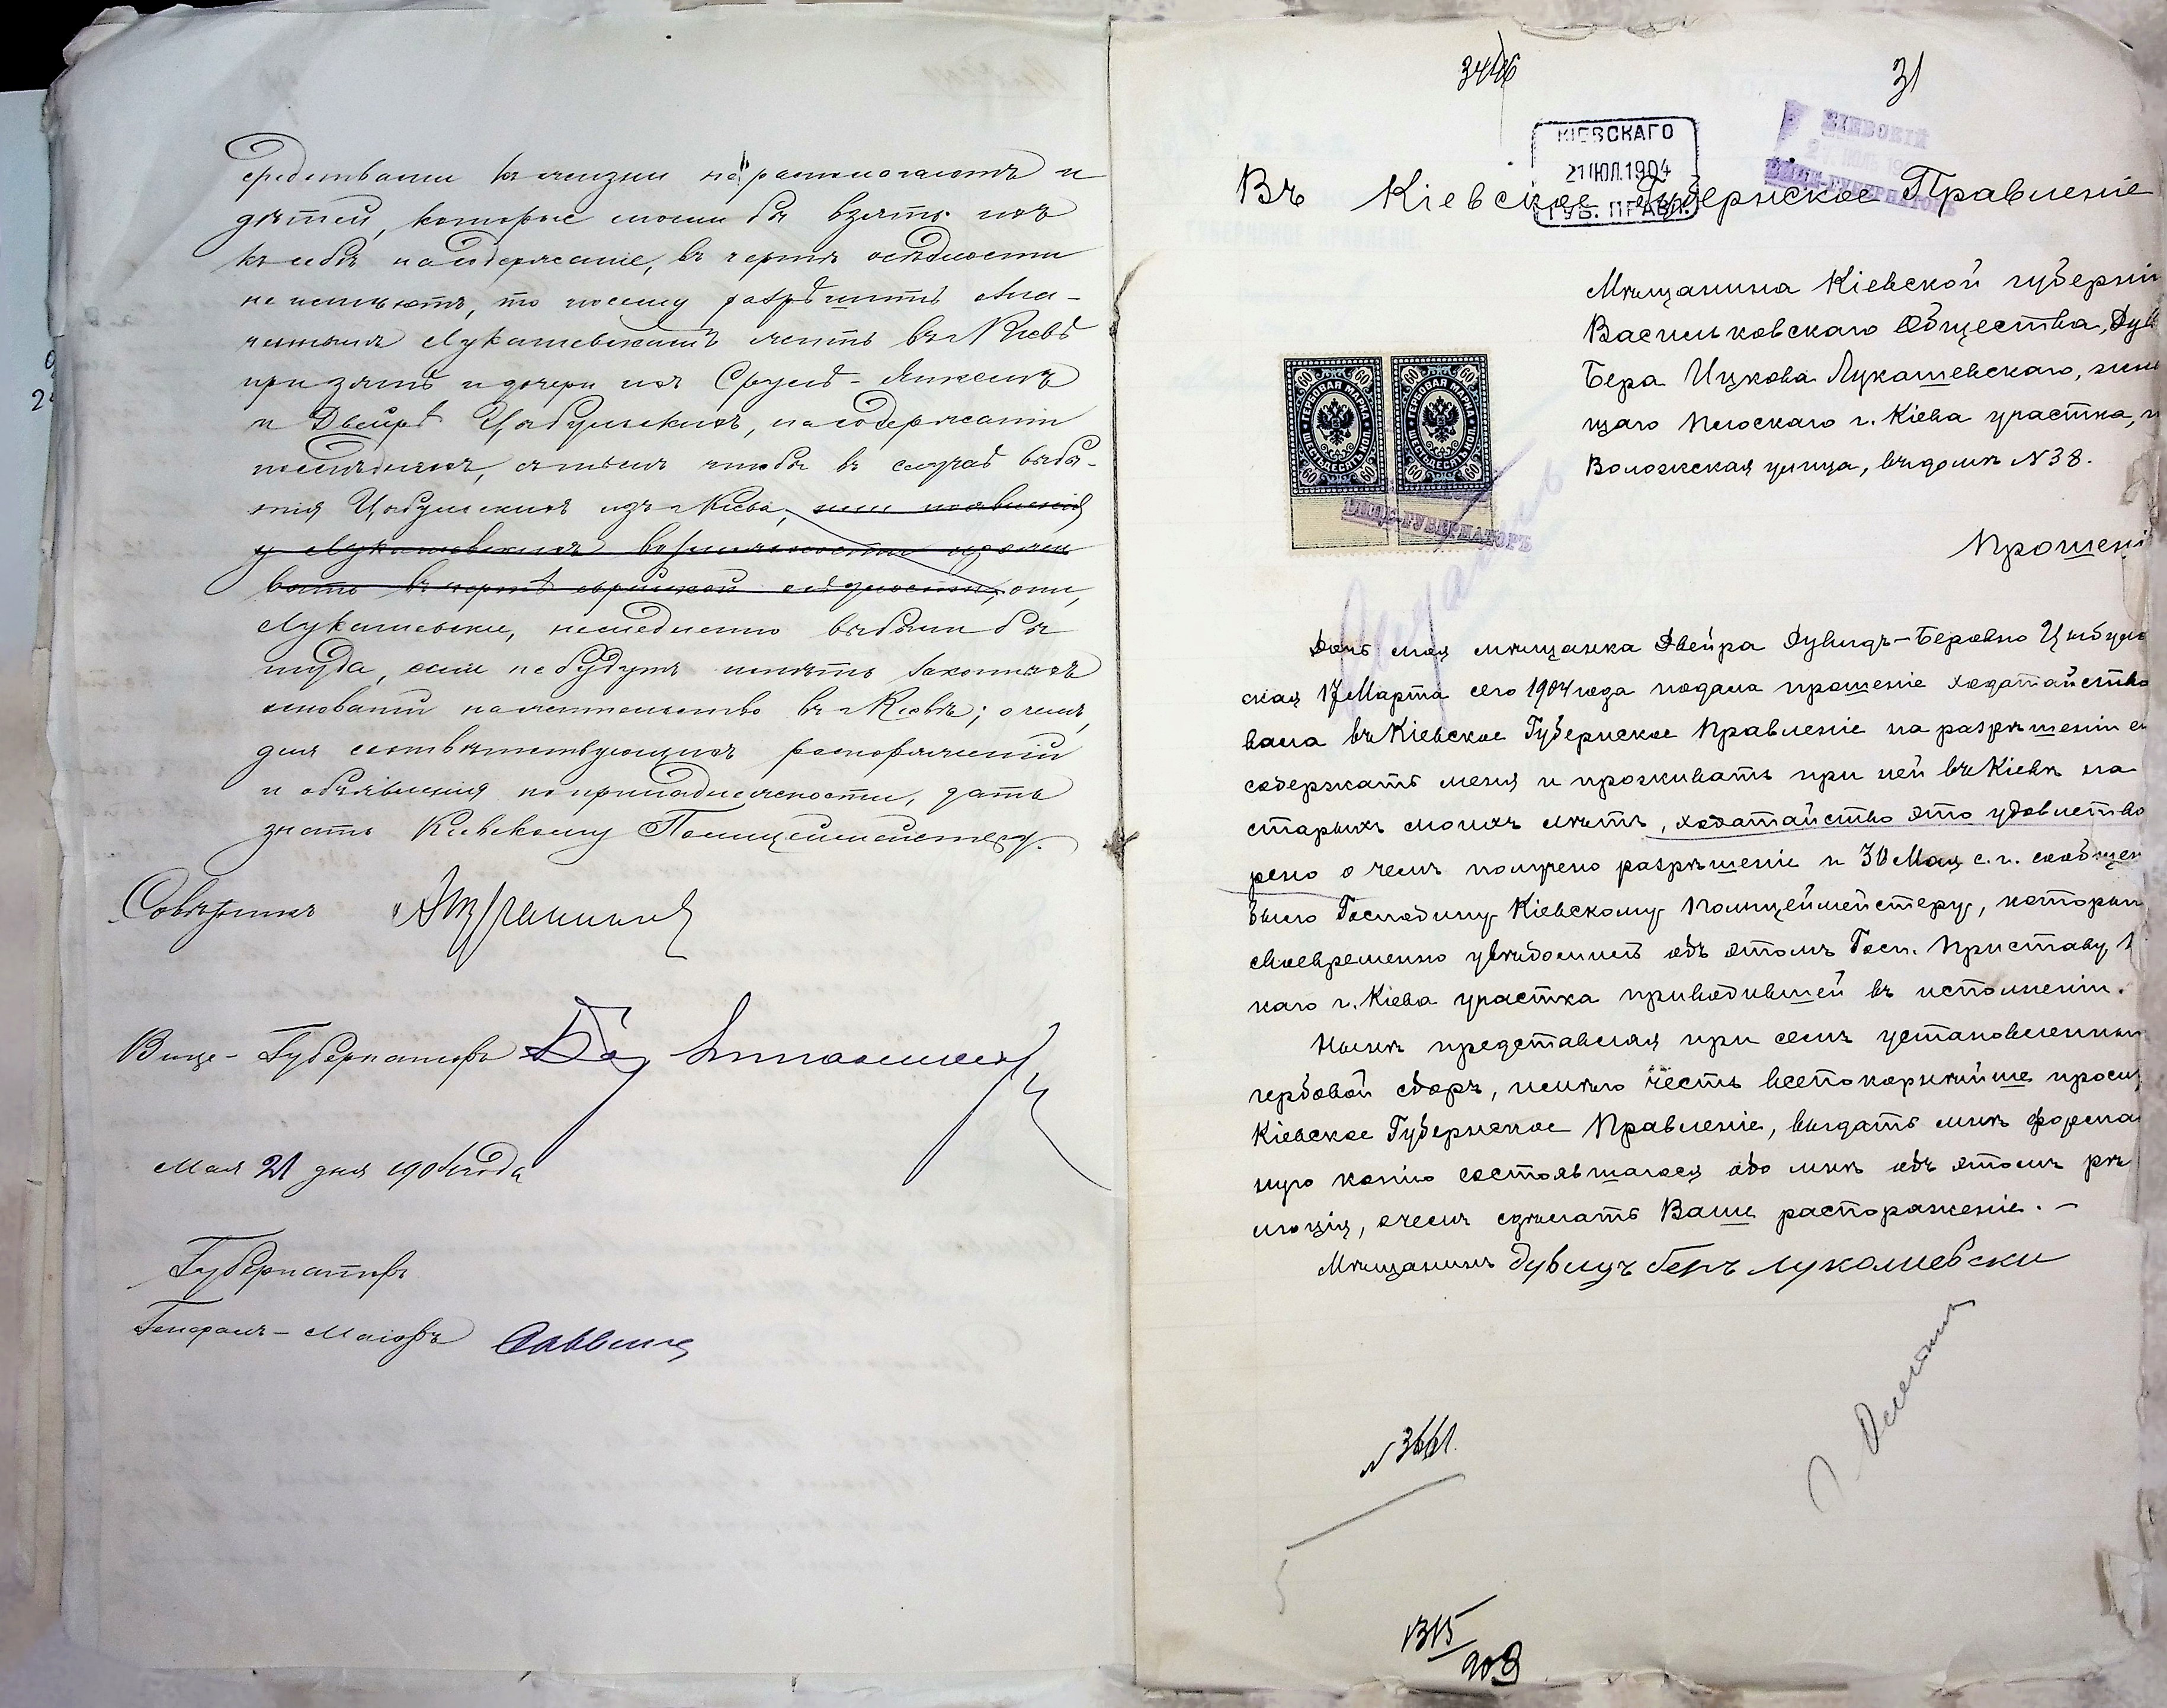 средствами къ жизни не располагаютъ и
дѣтей, которые могли бы взять ихъ
къ себѣ на содержаніе, въ чертѣ осѣдлости
не имѣютъ, то посему разрѣшить
Лукашевскимъ жить въ г. Кіевѣ
при зятѣ и дочери ихъ Сруль-Янкелѣ
и Двейрѣ Цыбульскихъ, на содержаніи
послѣднихъ, съ тѣмъ чтобы въ случаѣ выбы-
тія Цыбульскихъ изъ г. Кіева, или появленія
у Лукашевскихъ возможности прожи
вать въ чертѣ еврейской осѣдлости, они,
Лукашевскіе, немедленно выбыли бы
туда, если не будутъ имѣть законныхъ
основаній на жительство въ г. Кіевѣ; о чемъ,
для соотвѣтствующихъ распоряженій
и объявленія по принадлежности, дать
знать Кіевскому Полицеймейстеру.
Совѣтникъ
Вице-Губернаторъ
Мая 21 дня 1904 года
Губернаторъ
Генералъ-Маіоръ Саввичъ
31
КІЕВСКАГО
21 ІЮЛ. 1904
ГУБ. ПРАВЛ.
КІЕВСКІЙ
ВИЦЕ-ГУБЕРНАТОРЪ
Въ Кіевское Губернское Правленіе
Мѣщанина Кіевской губерніи
Васильковскаго Общества, Дув
Бера Ицкова Лукашевскаго, жив
щаго Плоскаго г. Кіева участка, п
Воложская улица, въ домѣ № 38.
60 60 60 60
ГЕРБОВАЯ МАРКА ГЕРБОВАЯ МАРКА
ШЕСТЬДЕСЯТЪ КОП. ШЕСТЬДЕСЯТЪ КОП.
60 60 60 60
ВИЦЕ-ГУБЕРНАТОРЪ
Прошені
Дочь моя мѣщанка Двейра Дувидъ-Беровно Цыбуль
ская 17 Марта сего 1904 года подала прошеніе ходатайство
вала въ Кіевское Губернское Правленіе на разрѣшеніи ей
содержать меня и проживать при ней въ Кіевѣ на
старыхъ моихъ лѣтъ, ходатайство это удовлетво
рено о чемъ получено разрѣшеніе и 30 Мая с. г. сообщен
было Господину Кіевскому Полицеймейстеру, который
своевременно увѣдомилъ объ этомъ Госп. Приставу, П
каго г. Кіева участка приводившей въ исполненіи.
Нынѣ представляя при семъ установленный
гербовой сборъ, имѣю честь всепокорнѣйше просить
Кіевское Губернское Правленіе, выдать мнѣ формал
ную копію состоявшагося обо мнѣ объ этомъ рѣ
люціи, очемъ сдѣлать Ваше распоряженіе. –
Мѣщанинъ Дувидъ Беръ Лукашевски
№ 3661.
1315
903